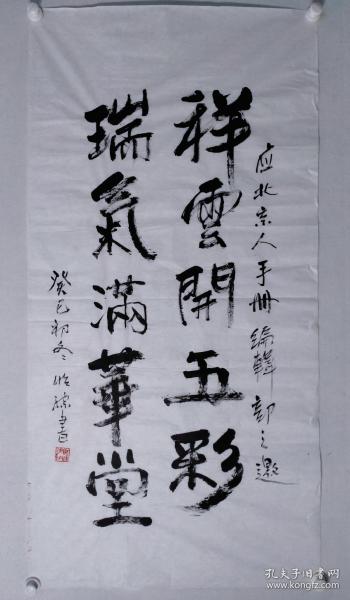 应北京人手册编辑部之邀
祥雲開五彩
瑞氣滿華堂
癸巳初冬 書
孔夫子旧书网
www.kongfz.com